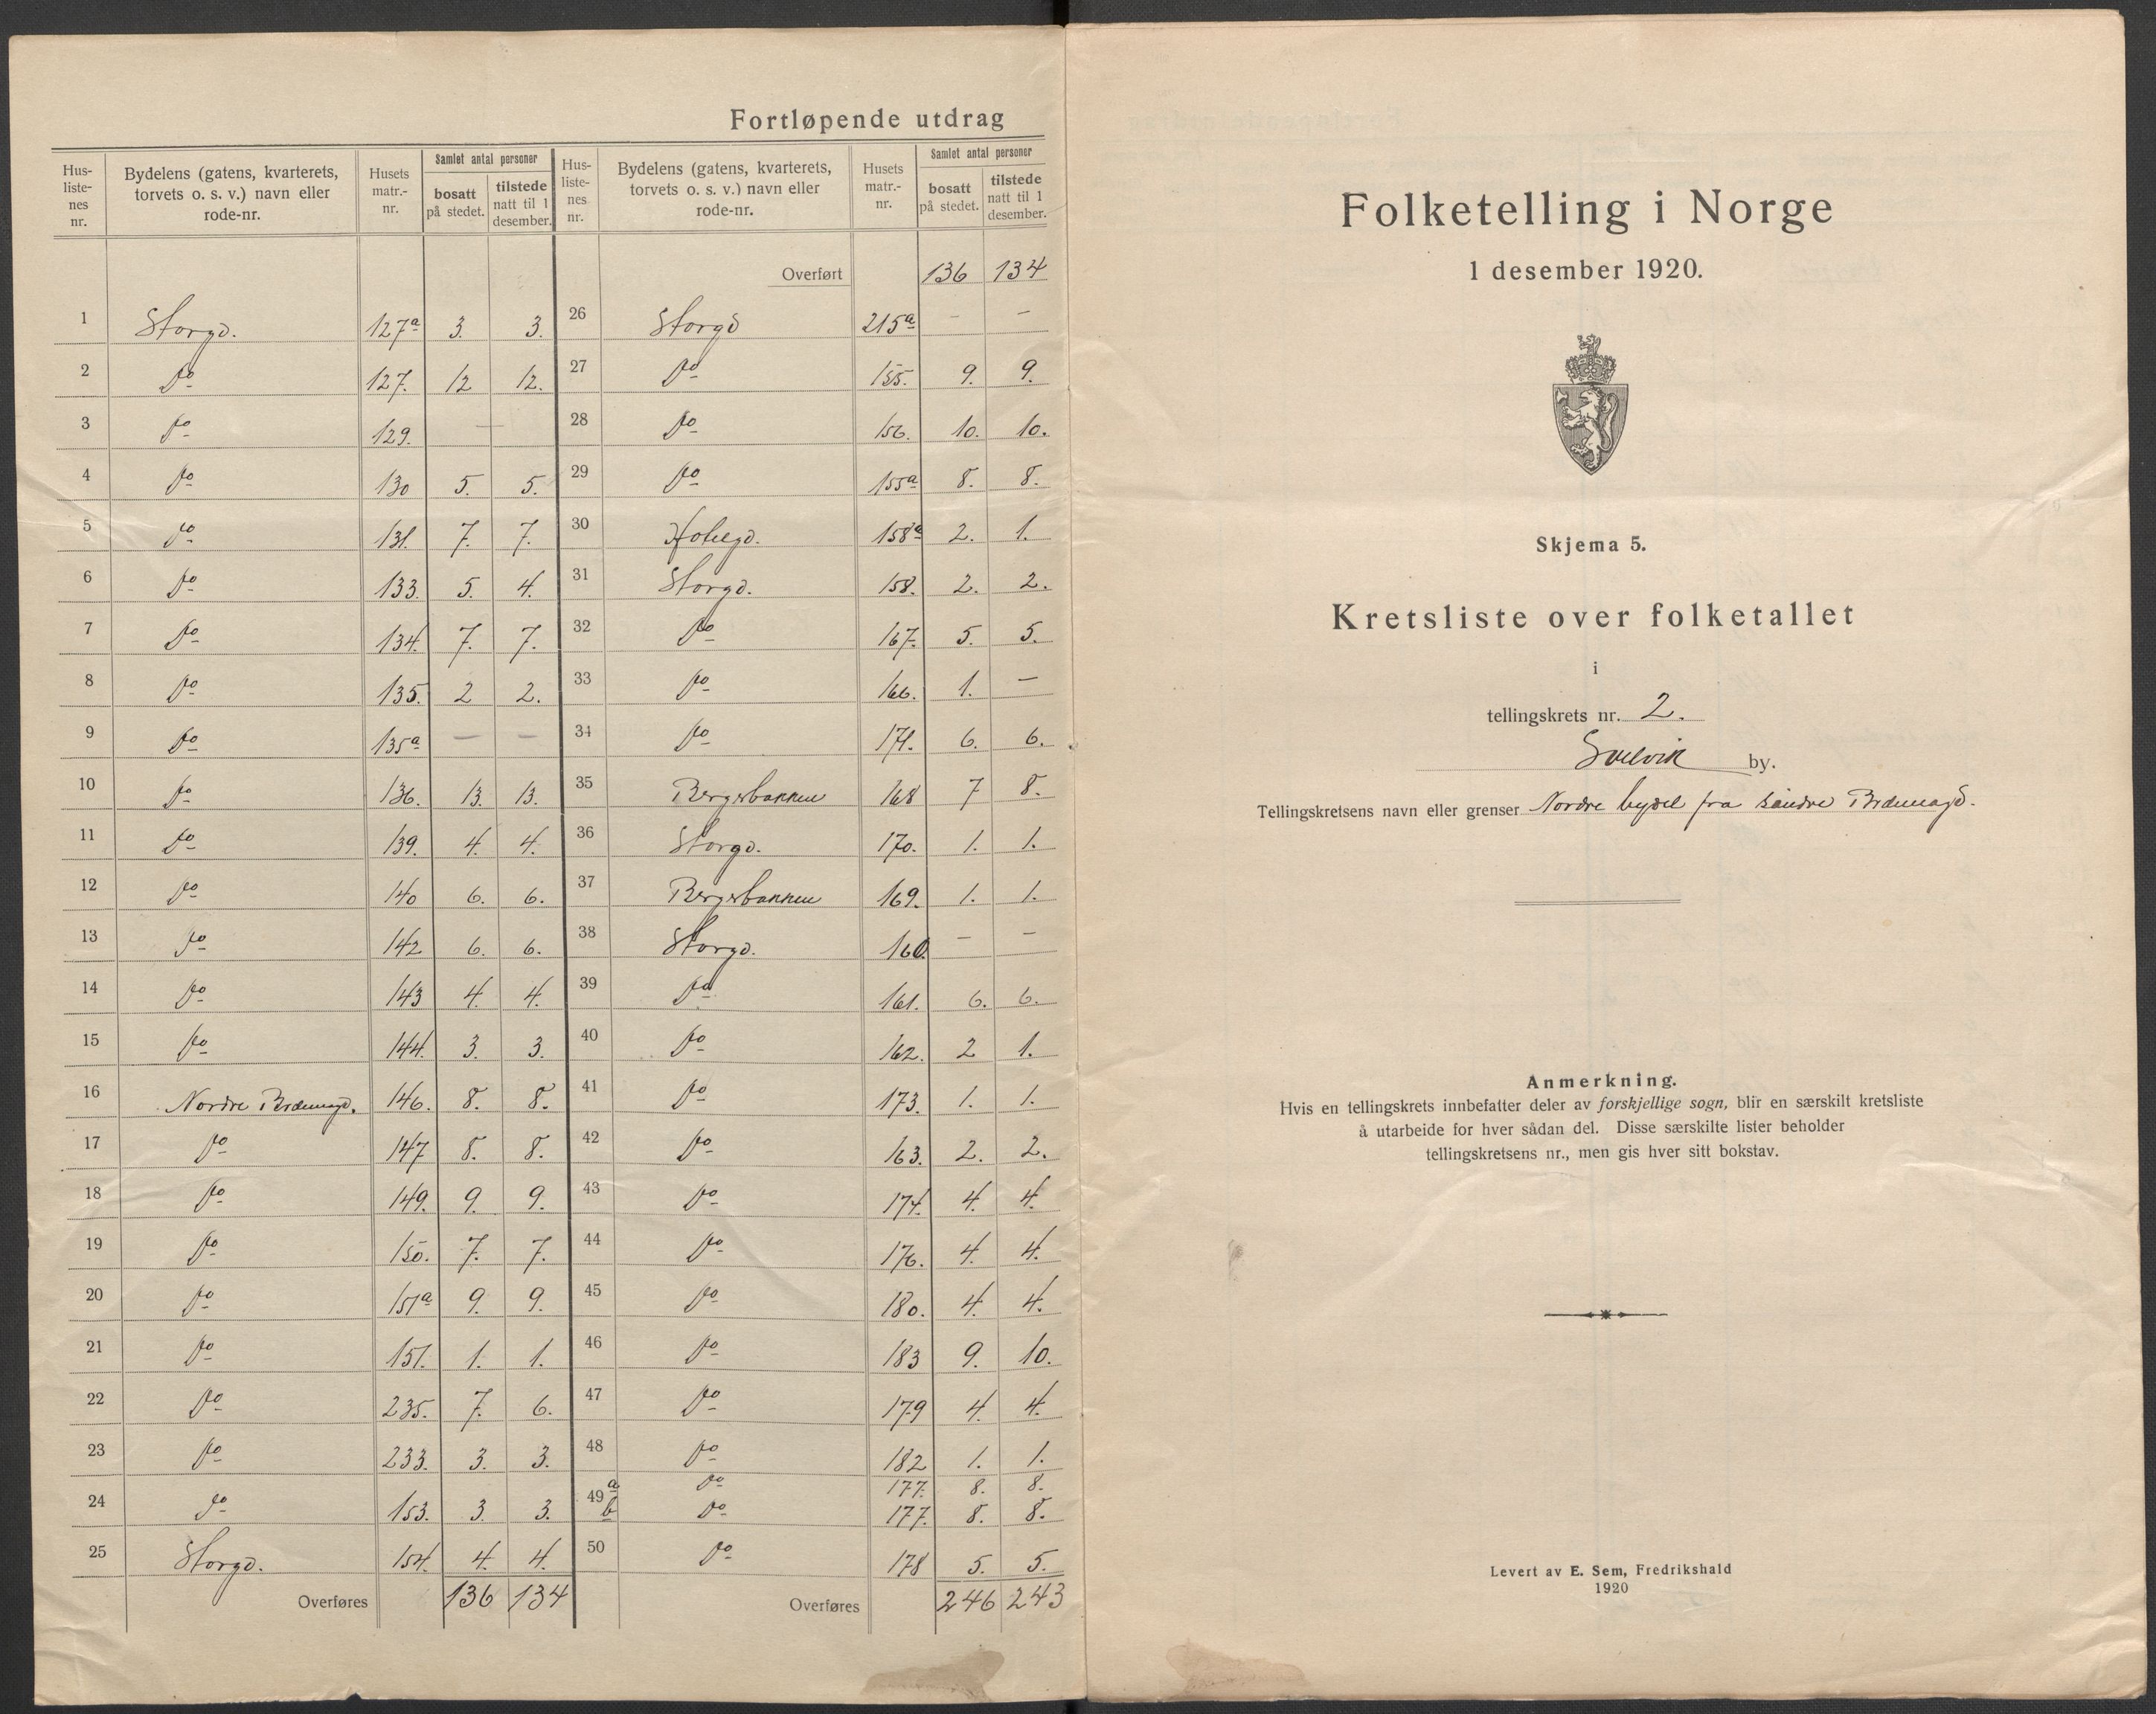 Fortløpende utdrag
Hus-
liste-
nes
nr.
Bydelens (gatens, kvarterets,
torvets o. s. v.) navn eller
rode-nr.
Husets
matr.-
nr.
Samlet antal personer
bosatt
på stedet.
tilstede
natt til 1
desember.
Hus-
liste-
nes
nr.
Bydelens (gatens, kvarterets,
torvets o. s. v.) navn eller
rode-nr.
Husets
matr.-
nr.
Samlet antal personer
bosatt
på stedet.
tilstede
natt til 1
desember.
Overført 136 134
1 Storgd. 127a 3. 3.
2 do 127. 12 12.
3 do 129. —
4 do 130 5. 5.
5 do 131. 7. 7.
6 do 133. 5. 4.
7 do 134. 7. 7.
8 do 135. 2 2.
9 do 135a — —
10 do 136. 13. 13.
11 do 139. 4. 4.
12 do 140 6. 6.
13 do 142 6. 6.
14 do 143 4. 4.
15 do 144. 3. 3.
16 Nordre 146. 8. 8.
17 do 147 8. 8.
18 do 149. 9. 9.
19 do 150. 7. 7.
20 do 151a 9. 9.
21 do 151. 1. 1.
22 do 235. 7. 6.
23 do 233. 3. 3.
24 do 153. 3. 3.
25 Storgd. 154. 4. 4.
Overføres 136 134
26 Storgd 215a — —
27 do 155. 9. 9.
28 do 156. 10. 10.
29 do 155a 8. 8.
30 158a 2. 1.
31 Storgd. 158. 2. 2.
32 do 167. 5. 5.
33 do 166. 1. —
34 do 171. 6. 6.
35 Bergerbakken 168 7 8.
36 Storgd. 170. 1. 1.
37 Bergerbakken 169. 1. 1.
38 Storgd. 160. — —
39 do 161. 6. 6.
40 do 162. 2 1.
41 do 173. 1. 1.
42 do 163. 2. 2.
43 do 174. 4. 4.
44 do 176. 4. 4.
45 do 180. 4. 4.
46 do 183 9. 10.
47 do 179 4. 4.
48 do 182 1. 1.
49 a do 177. 8. 8.
b do 177. 8. 8.
50 do 178 5. 5.
Overføres 246 243
Folketelling i Norge
1 desember 1920.
Skjema 5.
Kretsliste over folketallet
i
tellingskrets nr. 2.
Svelvik by.
Tellingskretsens navn eller grenser Nordre bydel fra søndre
Anmerkning.
Hvis en tellingskrets innbefatter deler av forskjellige sogn, blir en særskilt kretsliste
å utarbeide for hver sådan del. Disse særskilte lister beholder
tellingskretsens nr., men gis hver sitt bokstav.
Levert av E. Sem, Fredrikshald
1920